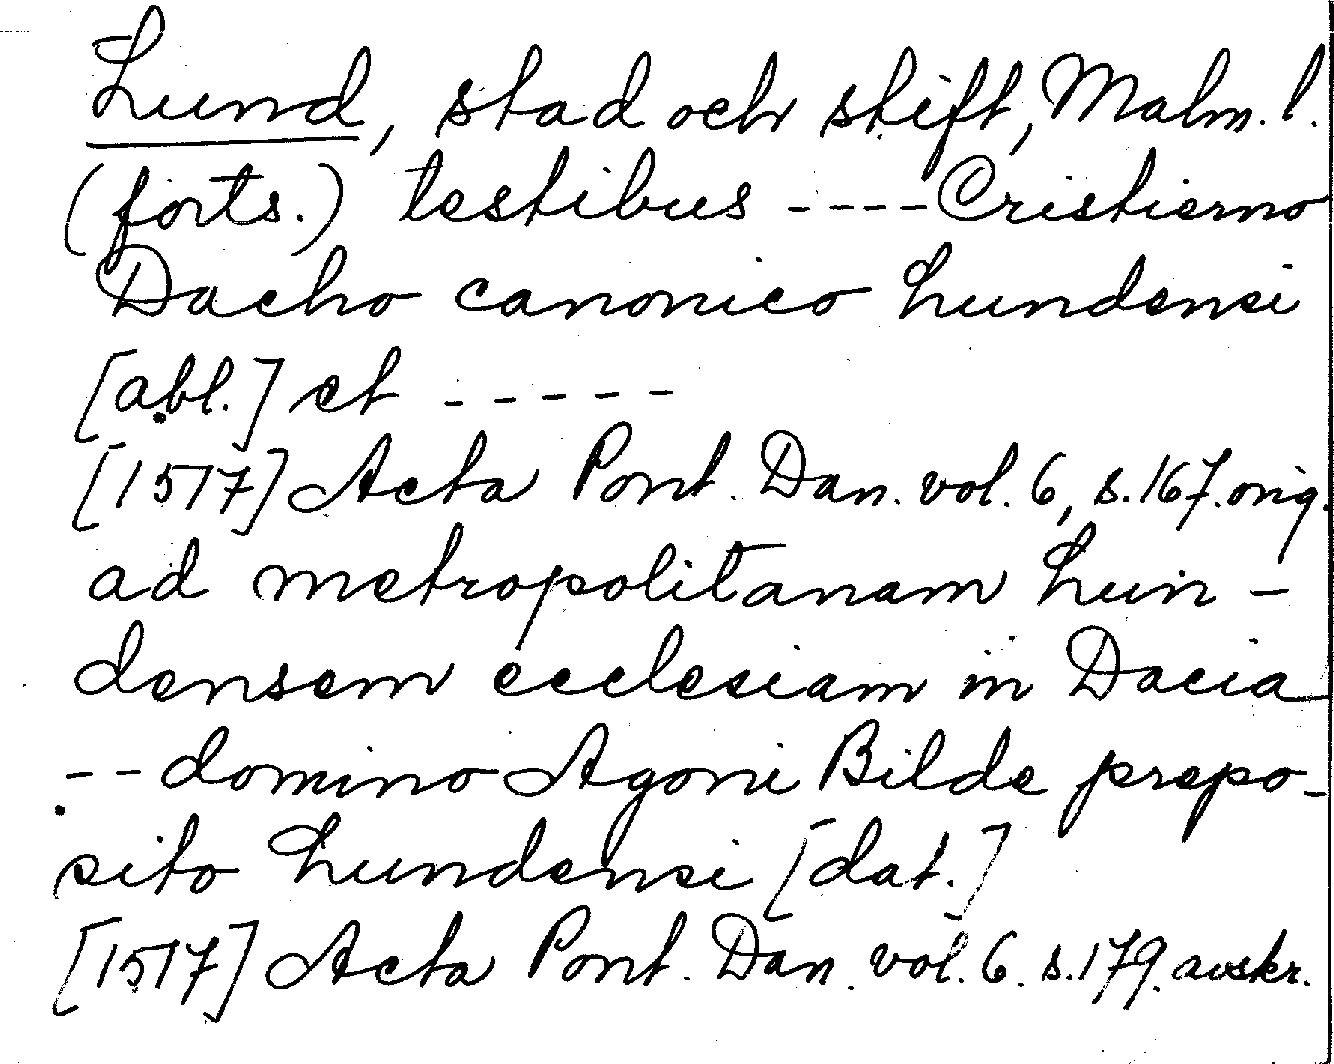 Lund, stad och stift, Malm. l.
(forts.) testibus ---- Cristierno
Dacho canonico lundensi
[abl.] et -----
[1517] Acta Pont. Dan. vol. 6, s. 167. orig.
ad metropolitanam lun-
densem ecclesiam in Dacia
-- domino Agoni Bilde prepo-
sito lundensi [dat.]
[1517] Acta Pont. Dan. vol. 6. s. 179. avskr.